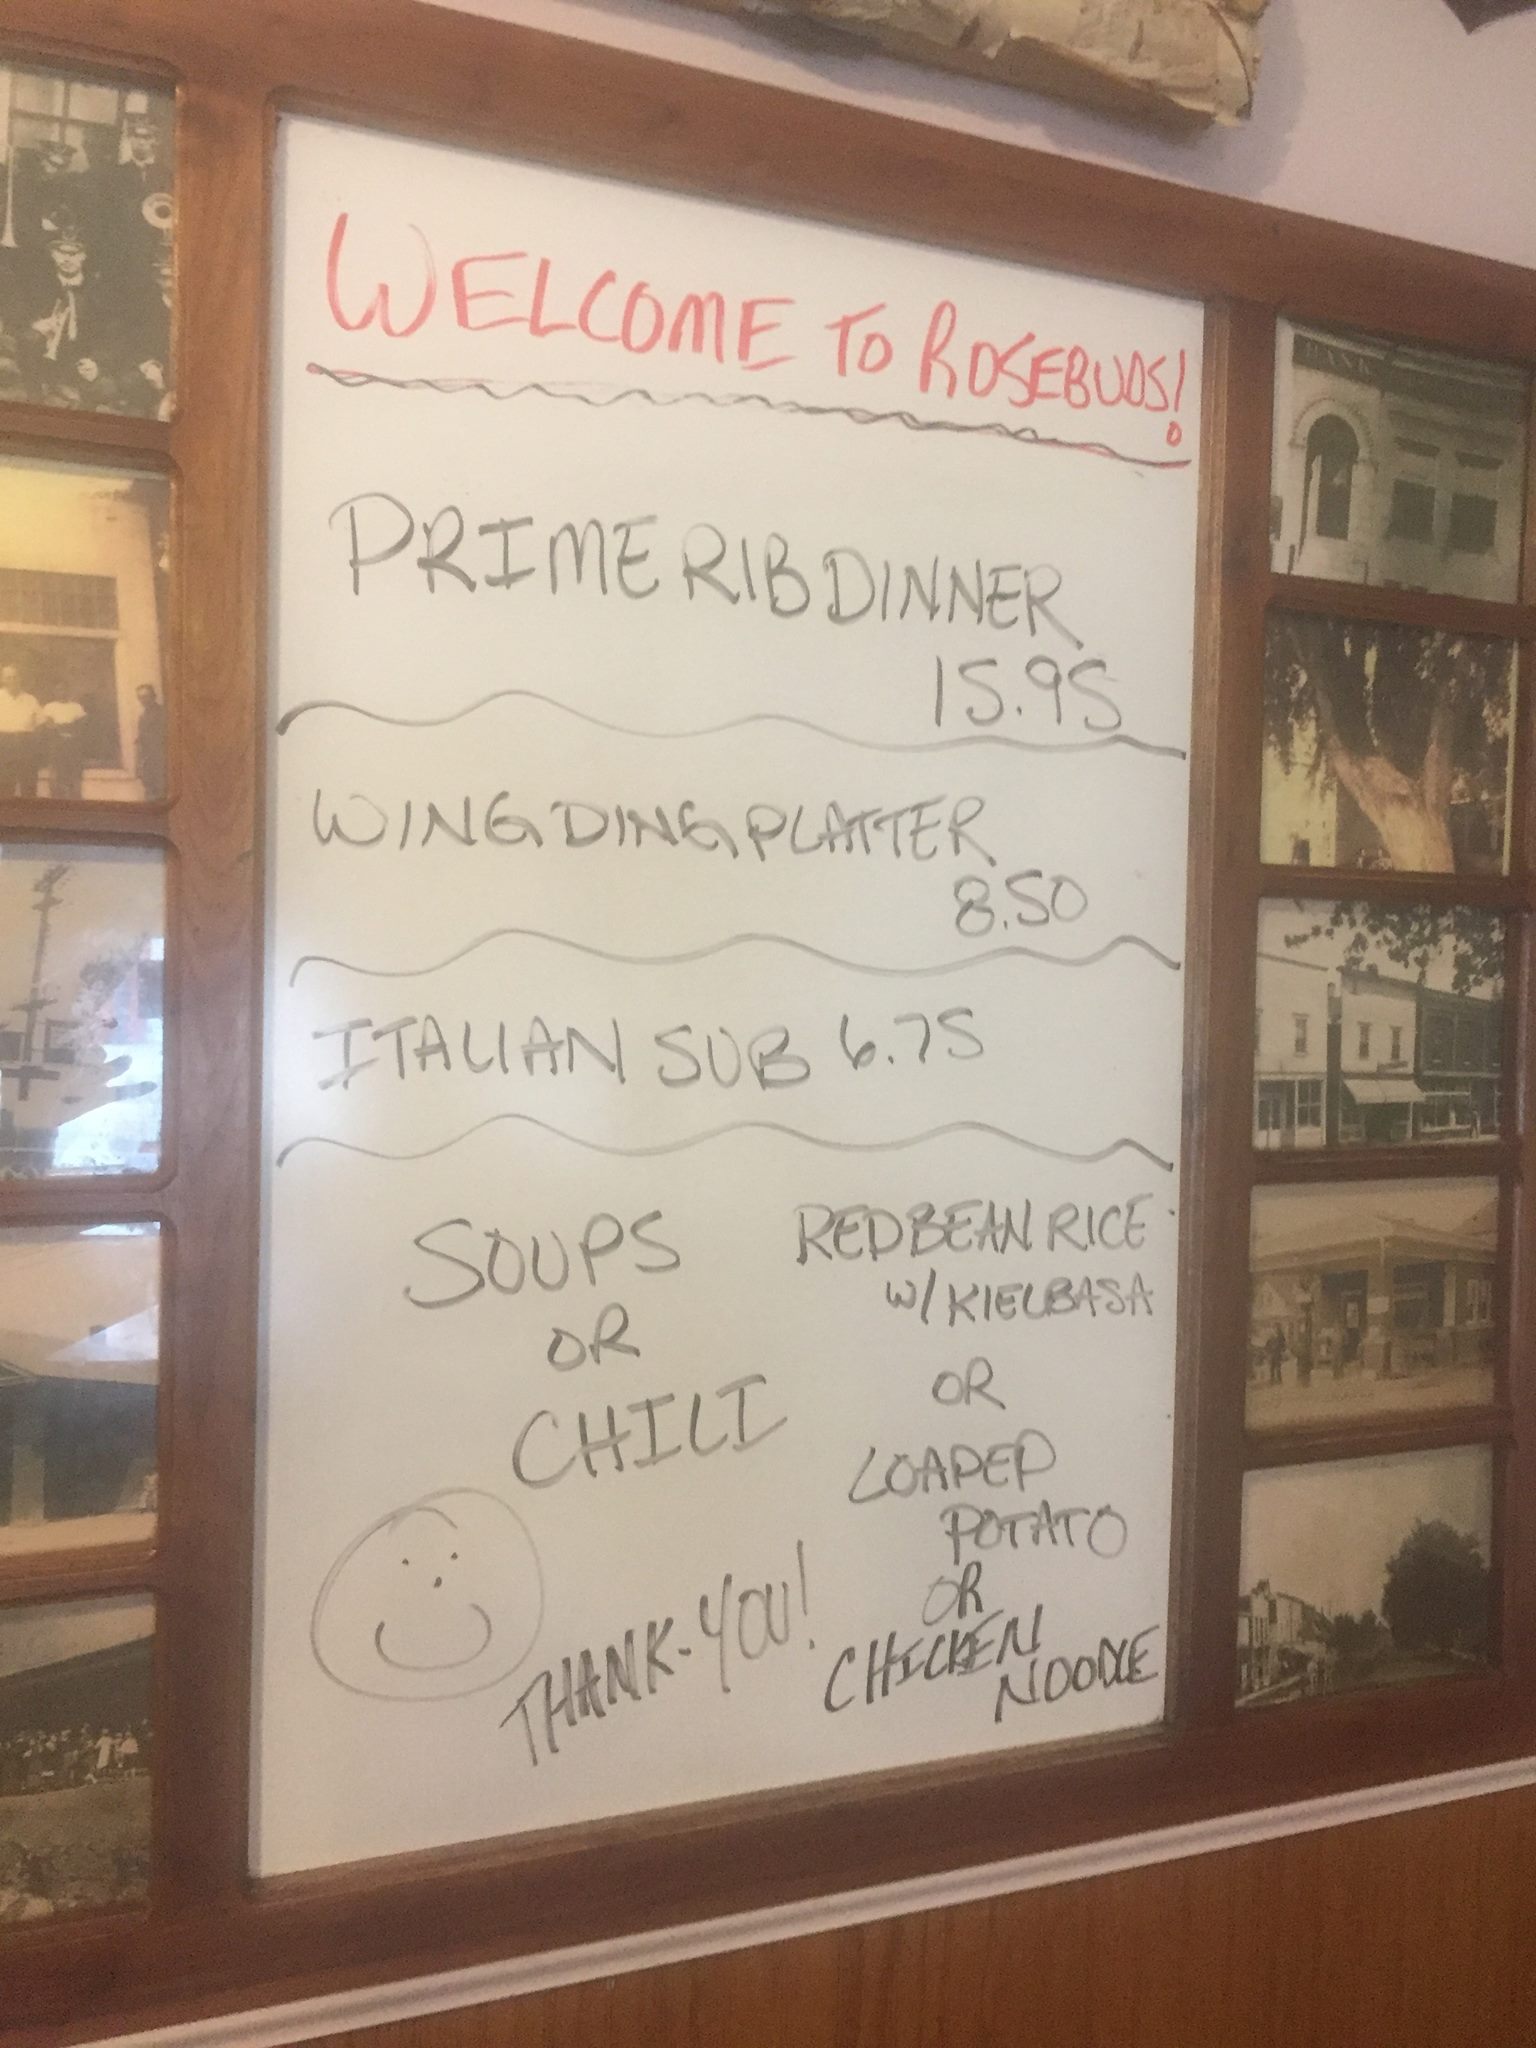 WELCOME TO ROSEBUDS!
PRIME RIB DINNER
15.95
WING DING PLATTER
8.50
ITALIAN SUB 6.75
SOUPS
OR
CHILI
RED BEAN RICE
W/ KIELBASA
OR
LOADED
POTATO
OR
CHICKEN
NOODLE
THANK-YOU!
BANK